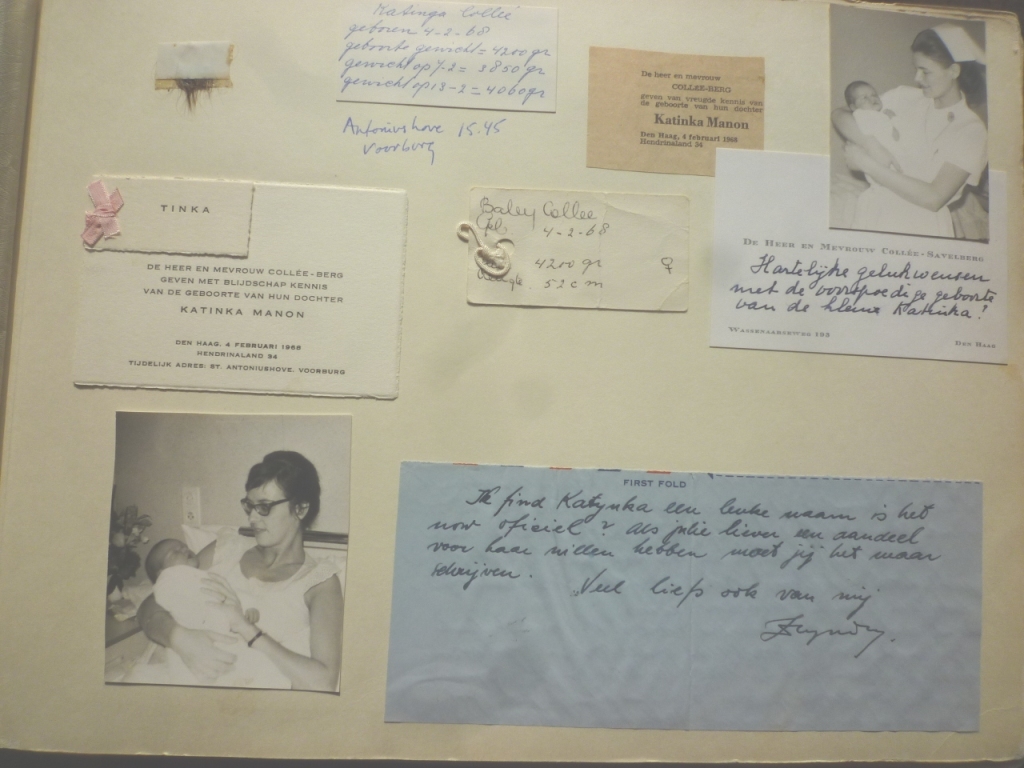 Katinga Collée
geboren 4-2-68
geboorte gewicht = 4200 gr
gewicht op 7-2 = 3850 gr
gewicht op 13-2 = 4060 gr
Antoniushove 15.45
Voorburg
De heer en mevrouw
COLLÉE-BERG
geven van vreugde kennis van
de geboorte van hun dochter
Katinka Manon
Den Haag, 4 februari 1968
Hendrinaland 34
TINKA
DE HEER EN MEVROUW COLLÉE-BERG
GEVEN MET BLIJDSCHAP KENNIS
VAN DE GEBOORTE VAN HUN DOCHTER
KATINKA MANON
DEN HAAG, 4 FEBRUARI 1968
HENDRINALAND 34
TIJDELIJK ADRES: ST. ANTONIUSHOVE, VOORBURG
Baby Collee
4-2-68
4200 gr ♀
lengte 52 cm
DE HEER EN MEVROUW COLLÉE-SAVELBERG
Hartelijke gelukwensen
met de voorspoedige geboorte
van de kleine Katinka!
WASSENAARSEWEG 193
DEN HAAG
FIRST FOLD
Ik find Katynka een leuke naam is het
now oficiel? Als julie liever een aandeel
voor haar willen hebben moet jij het maar
schrijven.
Veel liefs ook van mij